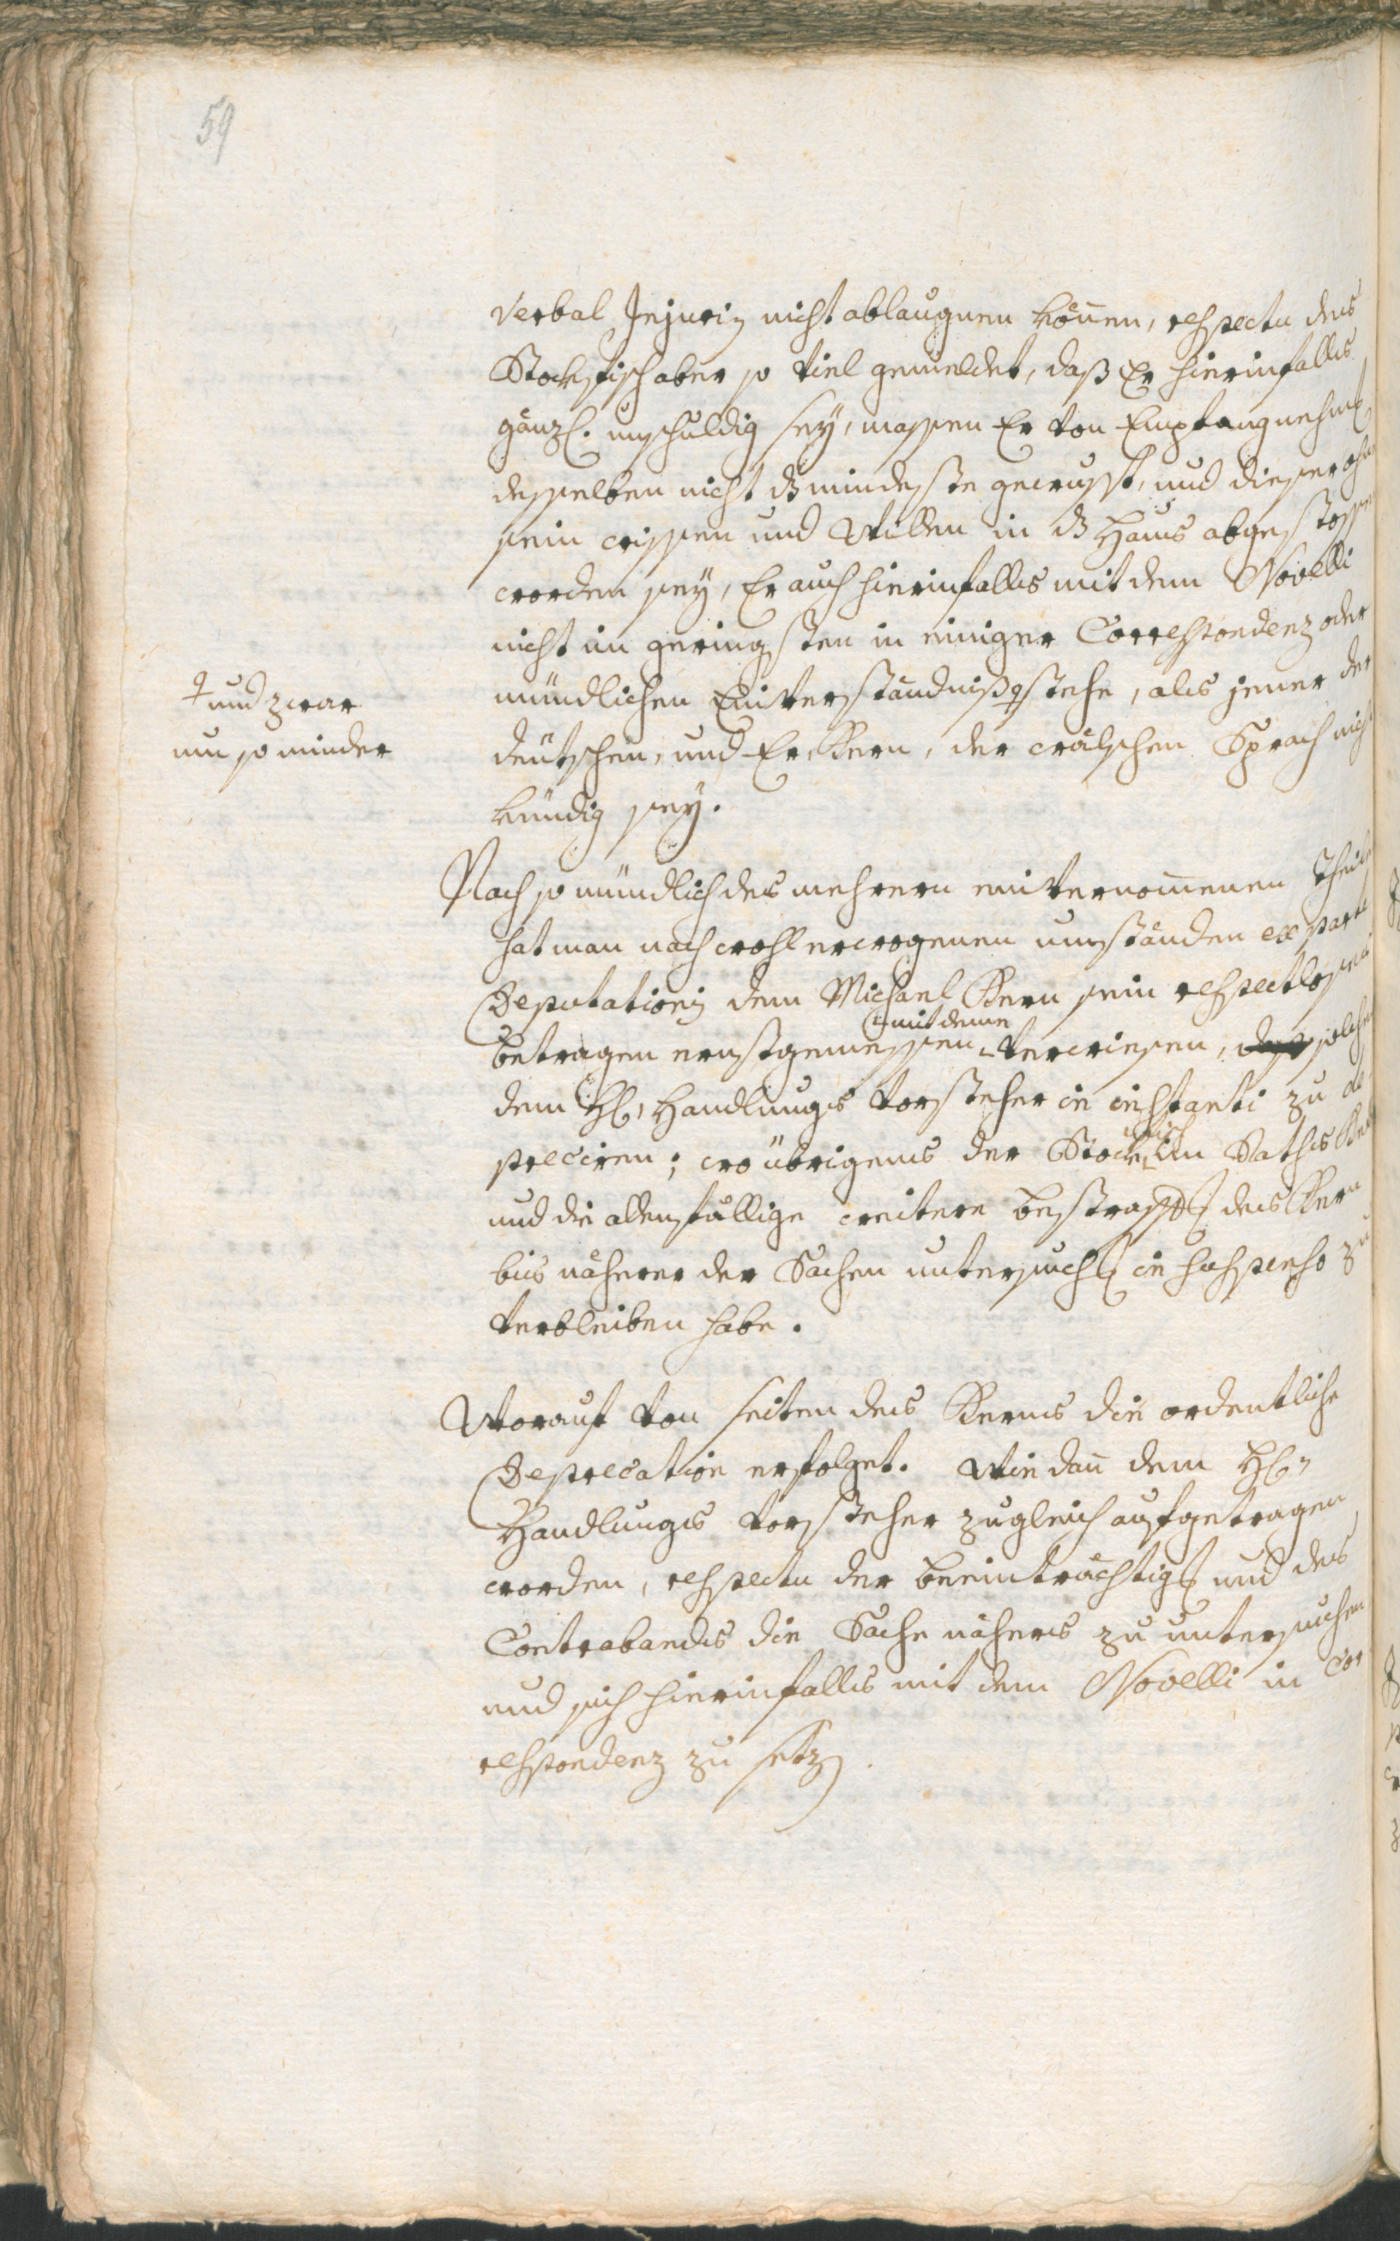 59
Verbal Injurien nicht ablaugnen können, respectu des
Stockfisch aber so viel gemeldet, daß Er hierinfalls
gänzl. unschuldig sey, massen Er von Empfangnehmung
desselben nicht dz mindeste gewusst, und dieser ohne
sein wissen und Willen in dz Haus abgestossen
worden sey, Er auch hierinfalls mit dem Novelli
nicht im geringsten in einiger Correspondenz oder
mündlichen Einverständniß ♀ stehe, als jener der
♀ und zwar
um so minder
deütschen, und Er, Kern, der wälschen Sprach nicht
kündig sey.
Nach so mündlich des mehrern einvernommenen Theilen
hat man nach wohl erwogenen umständen ex parte
Deputationis dem Michael Kern sein respectloses
betragen ernstgemessen verwiesen,
mit deme
solches
dem H. Handlungs Vorsteher in instanti zu de
preciren; wo übrigens der Stockfisch im
und die allenfällige weitere bestraffung des Kern
bis näherer der Sachen untersuchung in suspenso zu
verbleiben habe.
Worauf von seiten des Kerns die ordentliche
Deprecation erfolget. Wie dan dem H.
Handlungs Vorsteher zugleich aufgetragen
worden, respectu der beeinträchtigung und des
Contrabands die Sache nähers zu untersuchen
und sich hierinfalls mit dem Novelli in Cor
respondenz zu setzen.